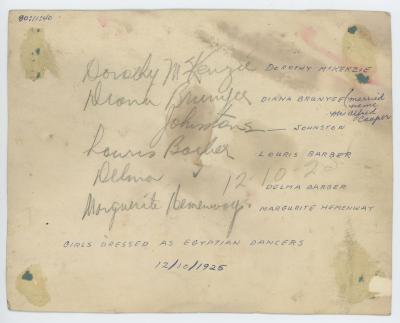 80:11:40
Dorothy McKenzie DOROTHY McKENZIE
Diana DIANA BRUNYEE (married
name
Mrs Alfred
Cooper
Johnstons — JOHNSTON
Louris Barber LOURIS BARBER
Delma " 12-10-25 DELMA BARBER
Marguerite Hemenway. MARGURITE HEMENWAY
GIRLS DRESSED AS EGYPTIAN DANCERS
12/10/1925